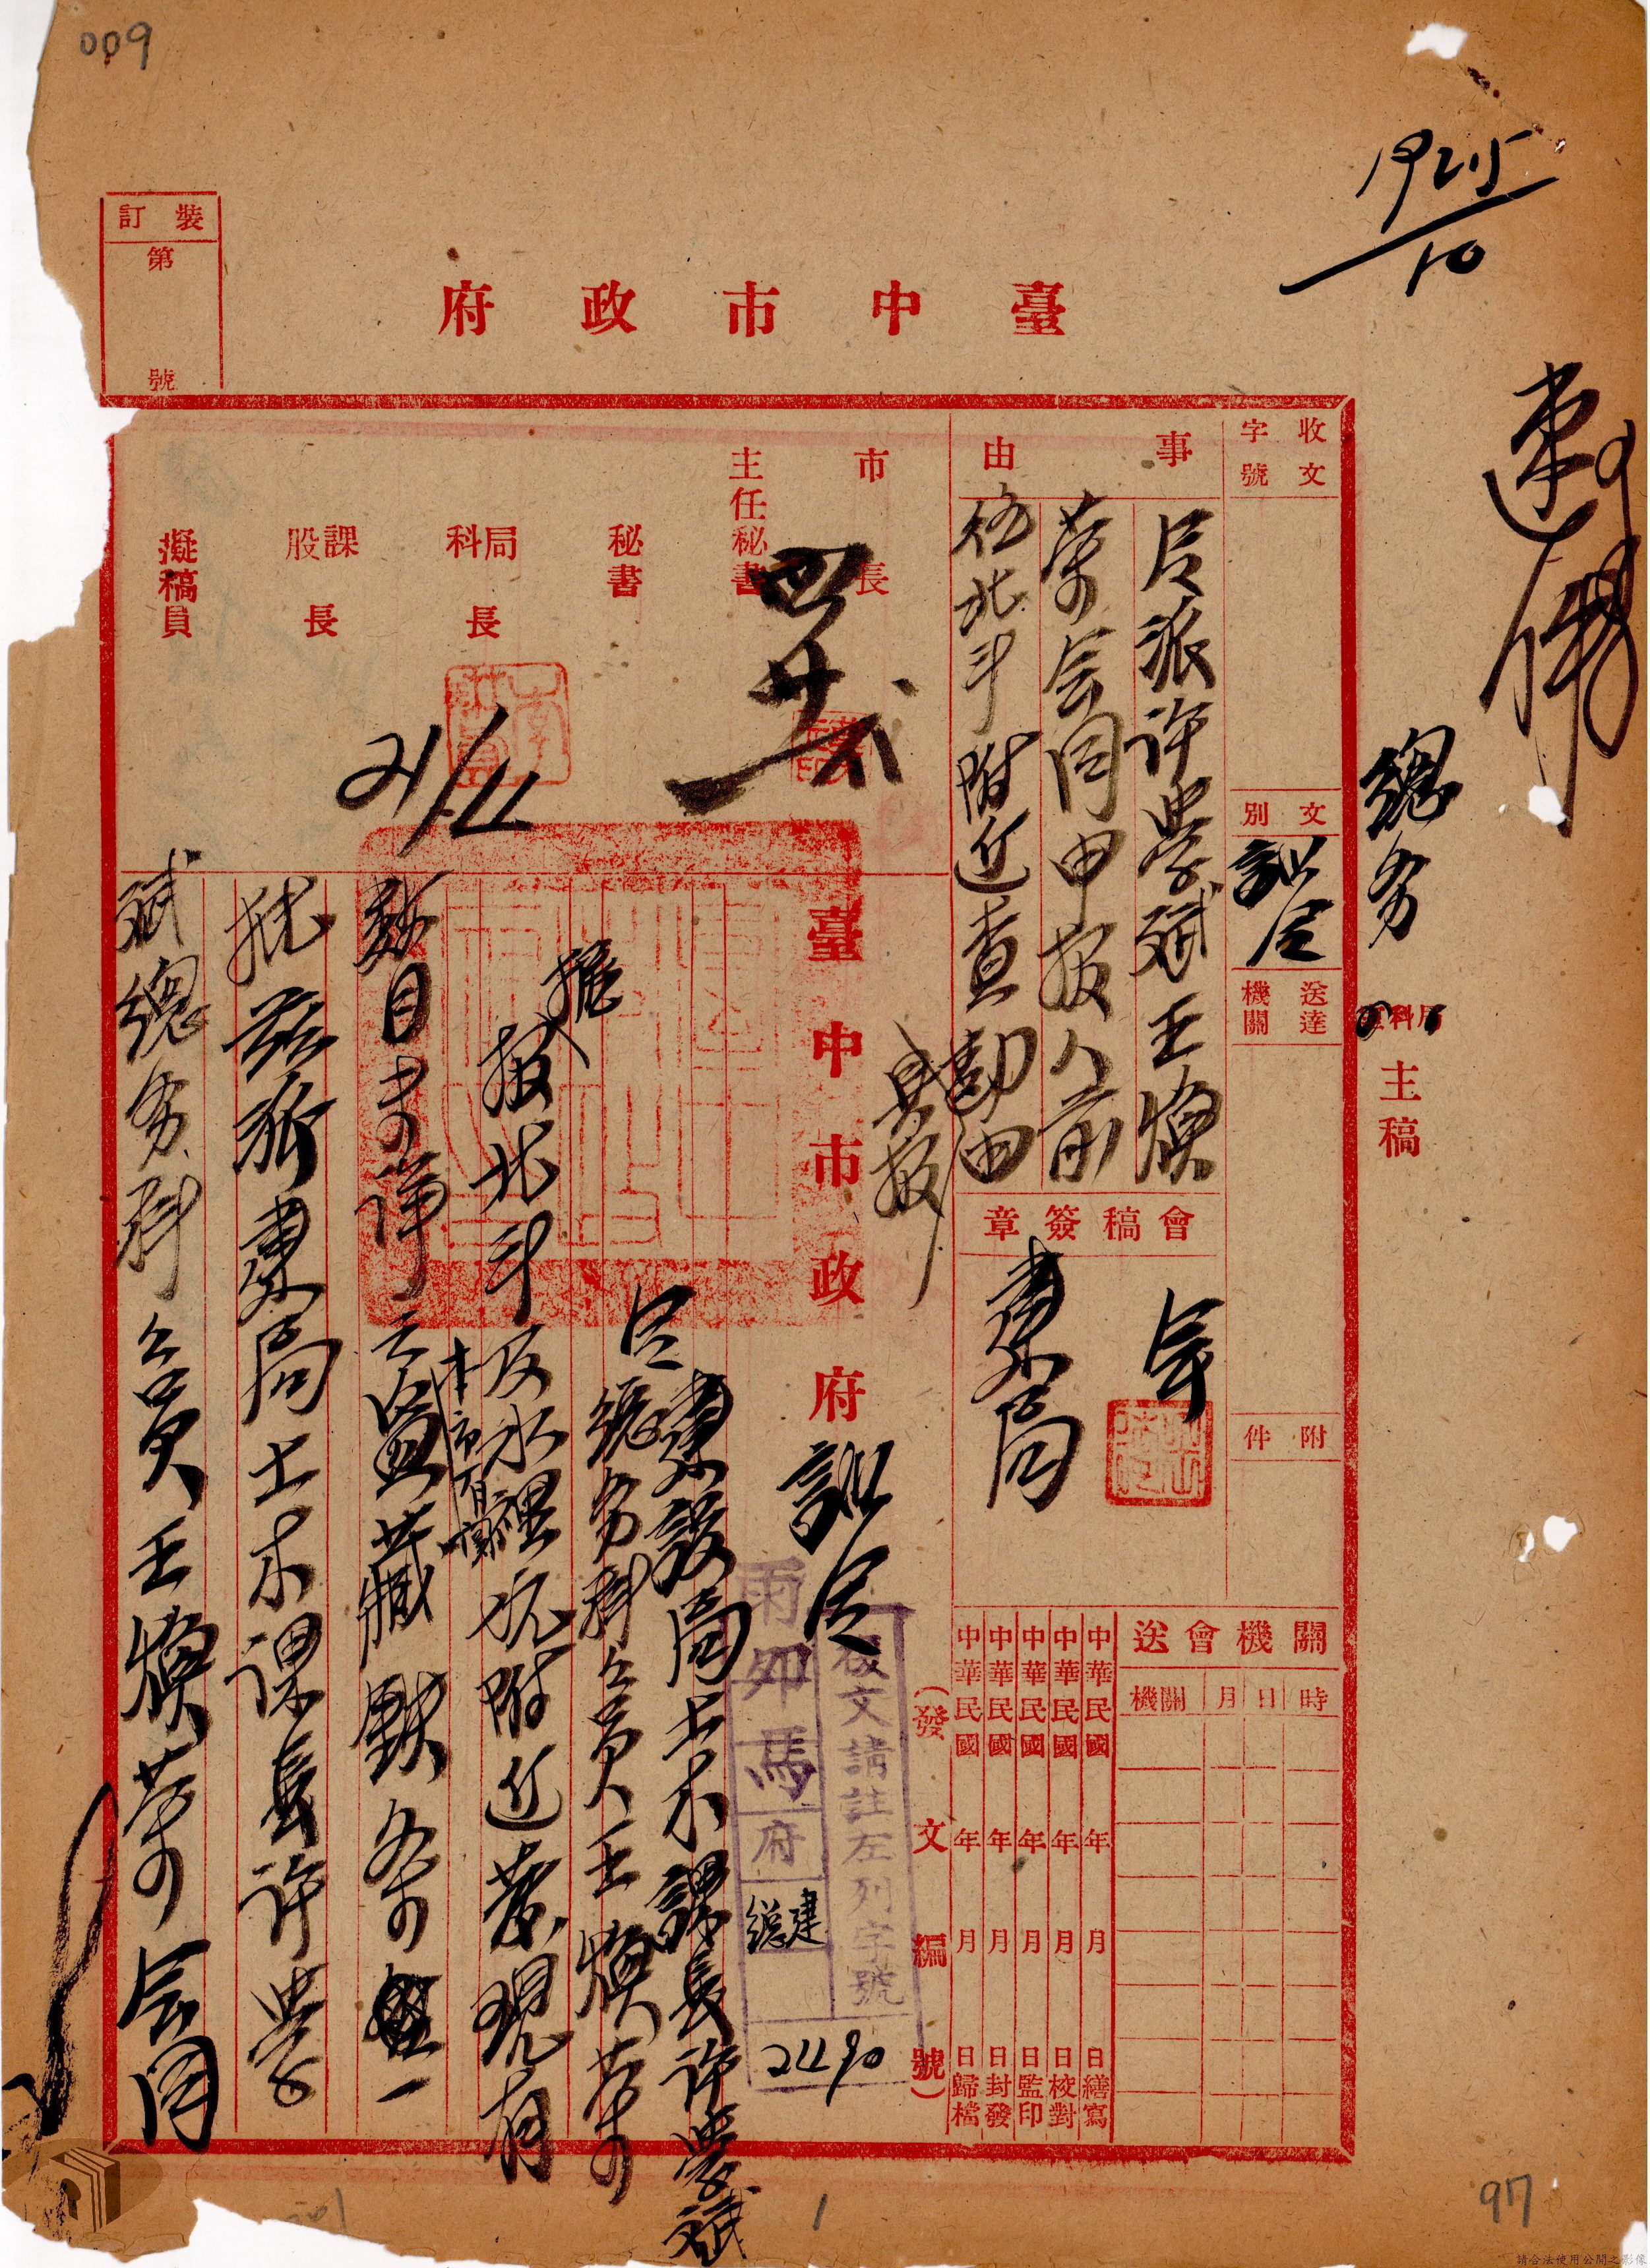 009
1925/10
速傳
裝訂
第 號
臺中市政府
總務
局科主稿
收文
字號
文別
訓令
送達機關
附件
事由
令派許學斌王煥
等会同申报人前
往北斗附近查勘由
具报
會稿簽章
建局
市長
主任秘書
秘書
局科長
課股長
擬稿員
21/11
關機會送
機關 月 日 時
中華民國 年 月 日繕寫
中華民國 年 月 日校對
中華民國 年 月 日監印
中華民國 年 月 日封發
中華民國 年 月 日歸檔
(發文編號)
復文請註左列字號
雨卯馬府
建總
2490
臺中市政府訓令
令
建設局土木課長許學斌
總務科公員王煥等
據
报北斗及水裡坑附近發現有
本市
數目未詳之盜藏
批茲派建局土木課長許學
斌總務科公員王煥等会同
97
請合法使用公開之影像